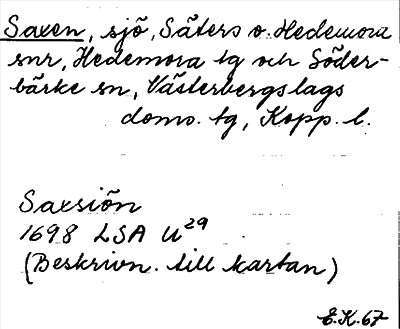 Saxen, sjö, Säters o. Hedemora
snr, Hedemora tg och Söder-
bärke sn, Västerbergslags
doms. tg, Kopp. l.
Saxsiön
1698 LSA U²⁹
(Beskrivn. till kartan)
E.K. 67